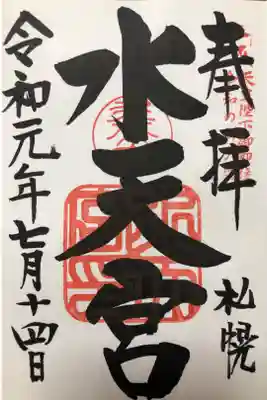 奉拝
札幌
水天宮
令和元年七月十四日